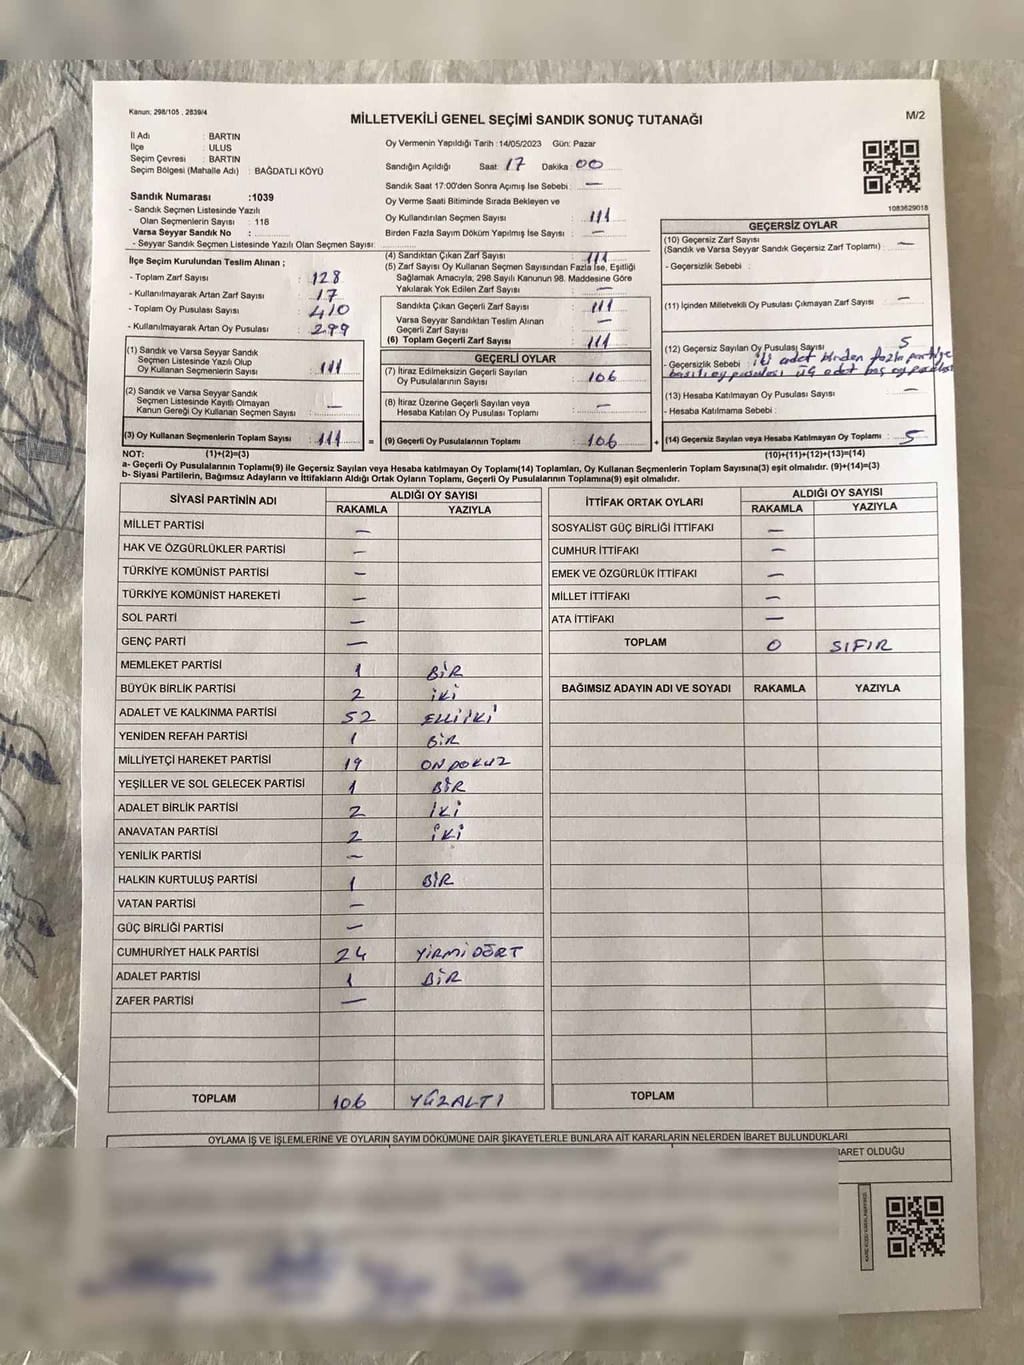 Kanun: 298/105 , 2839/4
MİLLETVEKİLİ GENEL SEÇİMİ SANDIK SONUÇ TUTANAĞI
M/2
İl Adı : BARTIN
İlçe : ULUS
Seçim Çevresi : BARTIN
Seçim Bölgesi (Mahalle Adı) : BAĞDATLI KÖYÜ
Sandık Numarası :1039
- Sandık Seçmen Listesinde Yazılı
Olan Seçmenlerin Sayısı : 118
Varsa Seyyar Sandık No :
- Seyyar Sandık Seçmen Listesinde Yazılı Olan Seçmen Sayısı:
Oy Vermenin Yapıldığı Tarih :14/05/2023 Gün: Pazar
Sandığın Açıldığı Saat: 17 Dakika: 00
Sandık Saat 17:00'den Sonra Açımış İse Sebebi : —
Oy Verme Saati Bitiminde Sırada Bekleyen ve
Oy Kullandırılan Seçmen Sayısı : 111
Birden Fazla Sayım Döküm Yapılmış İse Sayısı : —
1083629018
İlçe Seçim Kurulundan Teslim Alınan ;
- Toplam Zarf Sayısı : 128
- Kullanılmayarak Artan Zarf Sayısı : 17
- Toplam Oy Pusulası Sayısı : 410
- Kullanılmayarak Artan Oy Pusulası : 299
(1) Sandık ve Varsa Seyyar Sandık
Seçmen Listesinde Yazılı Olup
Oy Kullanan Seçmenlerin Sayısı : 111
(2) Sandık ve Varsa Seyyar Sandık
Seçmen Listesinde Kayıtlı Olmayan
Kanun Gereği Oy Kullanan Seçmen Sayısı : —
(3) Oy Kullanan Seçmenlerin Toplam Sayısı : 111
(4) Sandıktan Çıkan Zarf Sayısı : 111
(5) Zarf Sayısı Oy Kullanan Seçmen Sayısından Fazla İse, Eşitliği
Sağlamak Amacıyla; 298 Sayılı Kanunun 98. Maddesine Göre
Yakılarak Yok Edilen Zarf Sayısı : —
Sandıkta Çıkan Geçerli Zarf Sayısı : 111
Varsa Seyyar Sandıktan Teslim Alınan
Geçerli Zarf Sayısı : —
(6) Toplam Geçerli Zarf Sayısı : 111
GEÇERLİ OYLAR
(7) İtiraz Edilmeksizin Geçerli Sayılan
Oy Pusulalarının Sayısı : 106
(8) İtiraz Üzerine Geçerli Sayılan veya
Hesaba Katılan Oy Pusulası Toplamı : —
= (9) Geçerli Oy Pusulalarının Toplamı : 106
GEÇERSİZ OYLAR
(10) Geçersiz Zarf Sayısı
(Sandık ve Varsa Seyyar Sandık Geçersiz Zarf Toplamı) : —
- Geçersizlik Sebebi :
(11) İçinden Milletvekili Oy Pusulası Çıkmayan Zarf Sayısı : —
(12) Geçersiz Sayılan Oy Pusulası Sayısı : 5
- Geçersizlik Sebebi : iki adet birden fazla partiye
basılı oy pusulası üç adet boş oy pusulası
(13) Hesaba Katılmayan Oy Pusulası Sayısı : —
- Hesaba Katılmama Sebebi :
+ (14) Geçersiz Sayılan veya Hesaba Katılmayan Oy Toplamı : 5
NOT: (1)+(2)=(3) (10)+(11)+(12)+(13)=(14)
a- Geçerli Oy Pusulalarının Toplamı(9) ile Geçersiz Sayılan veya Hesaba katılmayan Oy Toplamı(14) Toplamları, Oy Kullanan Seçmenlerin Toplam Sayısına(3) eşit olmalıdır. (9)+(14)=(3)
b- Siyasi Partilerin, Bağımsız Adayların ve İttifakların Aldığı Ortak Oyların Toplamı, Geçerli Oy Pusulalarının Toplamına(9) eşit olmalıdır.
SİYASİ PARTİNİN ADI ALDIĞI OY SAYISI
RAKAMLA YAZIYLA
MİLLET PARTİSİ —
HAK VE ÖZGÜRLÜKLER PARTİSİ —
TÜRKİYE KOMÜNİST PARTİSİ —
TÜRKİYE KOMÜNİST HAREKETİ —
SOL PARTİ —
GENÇ PARTİ —
MEMLEKET PARTİSİ 1 BİR
BÜYÜK BİRLİK PARTİSİ 2 İKİ
ADALET VE KALKINMA PARTİSİ 52 ELLİİKİ
YENİDEN REFAH PARTİSİ 1 BİR
MİLLİYETÇİ HAREKET PARTİSİ 19 ONDOKUZ
YEŞİLLER VE SOL GELECEK PARTİSİ 1 BİR
ADALET BİRLİK PARTİSİ 2 İKİ
ANAVATAN PARTİSİ 2 İKİ
YENİLİK PARTİSİ —
HALKIN KURTULUŞ PARTİSİ 1 BİR
VATAN PARTİSİ —
GÜÇ BİRLİĞİ PARTİSİ —
CUMHURİYET HALK PARTİSİ 24 YİRMİDÖRT
ADALET PARTİSİ 1 BİR
ZAFER PARTİSİ —
TOPLAM 106 YÜZALTI
İTTİFAK ORTAK OYLARI ALDIĞI OY SAYISI
RAKAMLA YAZIYLA
SOSYALİST GÜÇ BİRLİĞİ İTTİFAKI —
CUMHUR İTTİFAKI —
EMEK VE ÖZGÜRLÜK İTTİFAKI —
MİLLET İTTİFAKI —
ATA İTTİFAKI —
TOPLAM 0 SIFIR
BAĞIMSIZ ADAYIN ADI VE SOYADI RAKAMLA YAZIYLA
TOPLAM
OYLAMA İŞ VE İŞLEMLERİNE VE OYLARIN SAYIM DÖKÜMÜNE DAİR ŞİKAYETLERLE BUNLARA AİT KARARLARIN NELERDEN İBARET BULUNDUKLARI
BARET OLDUĞU